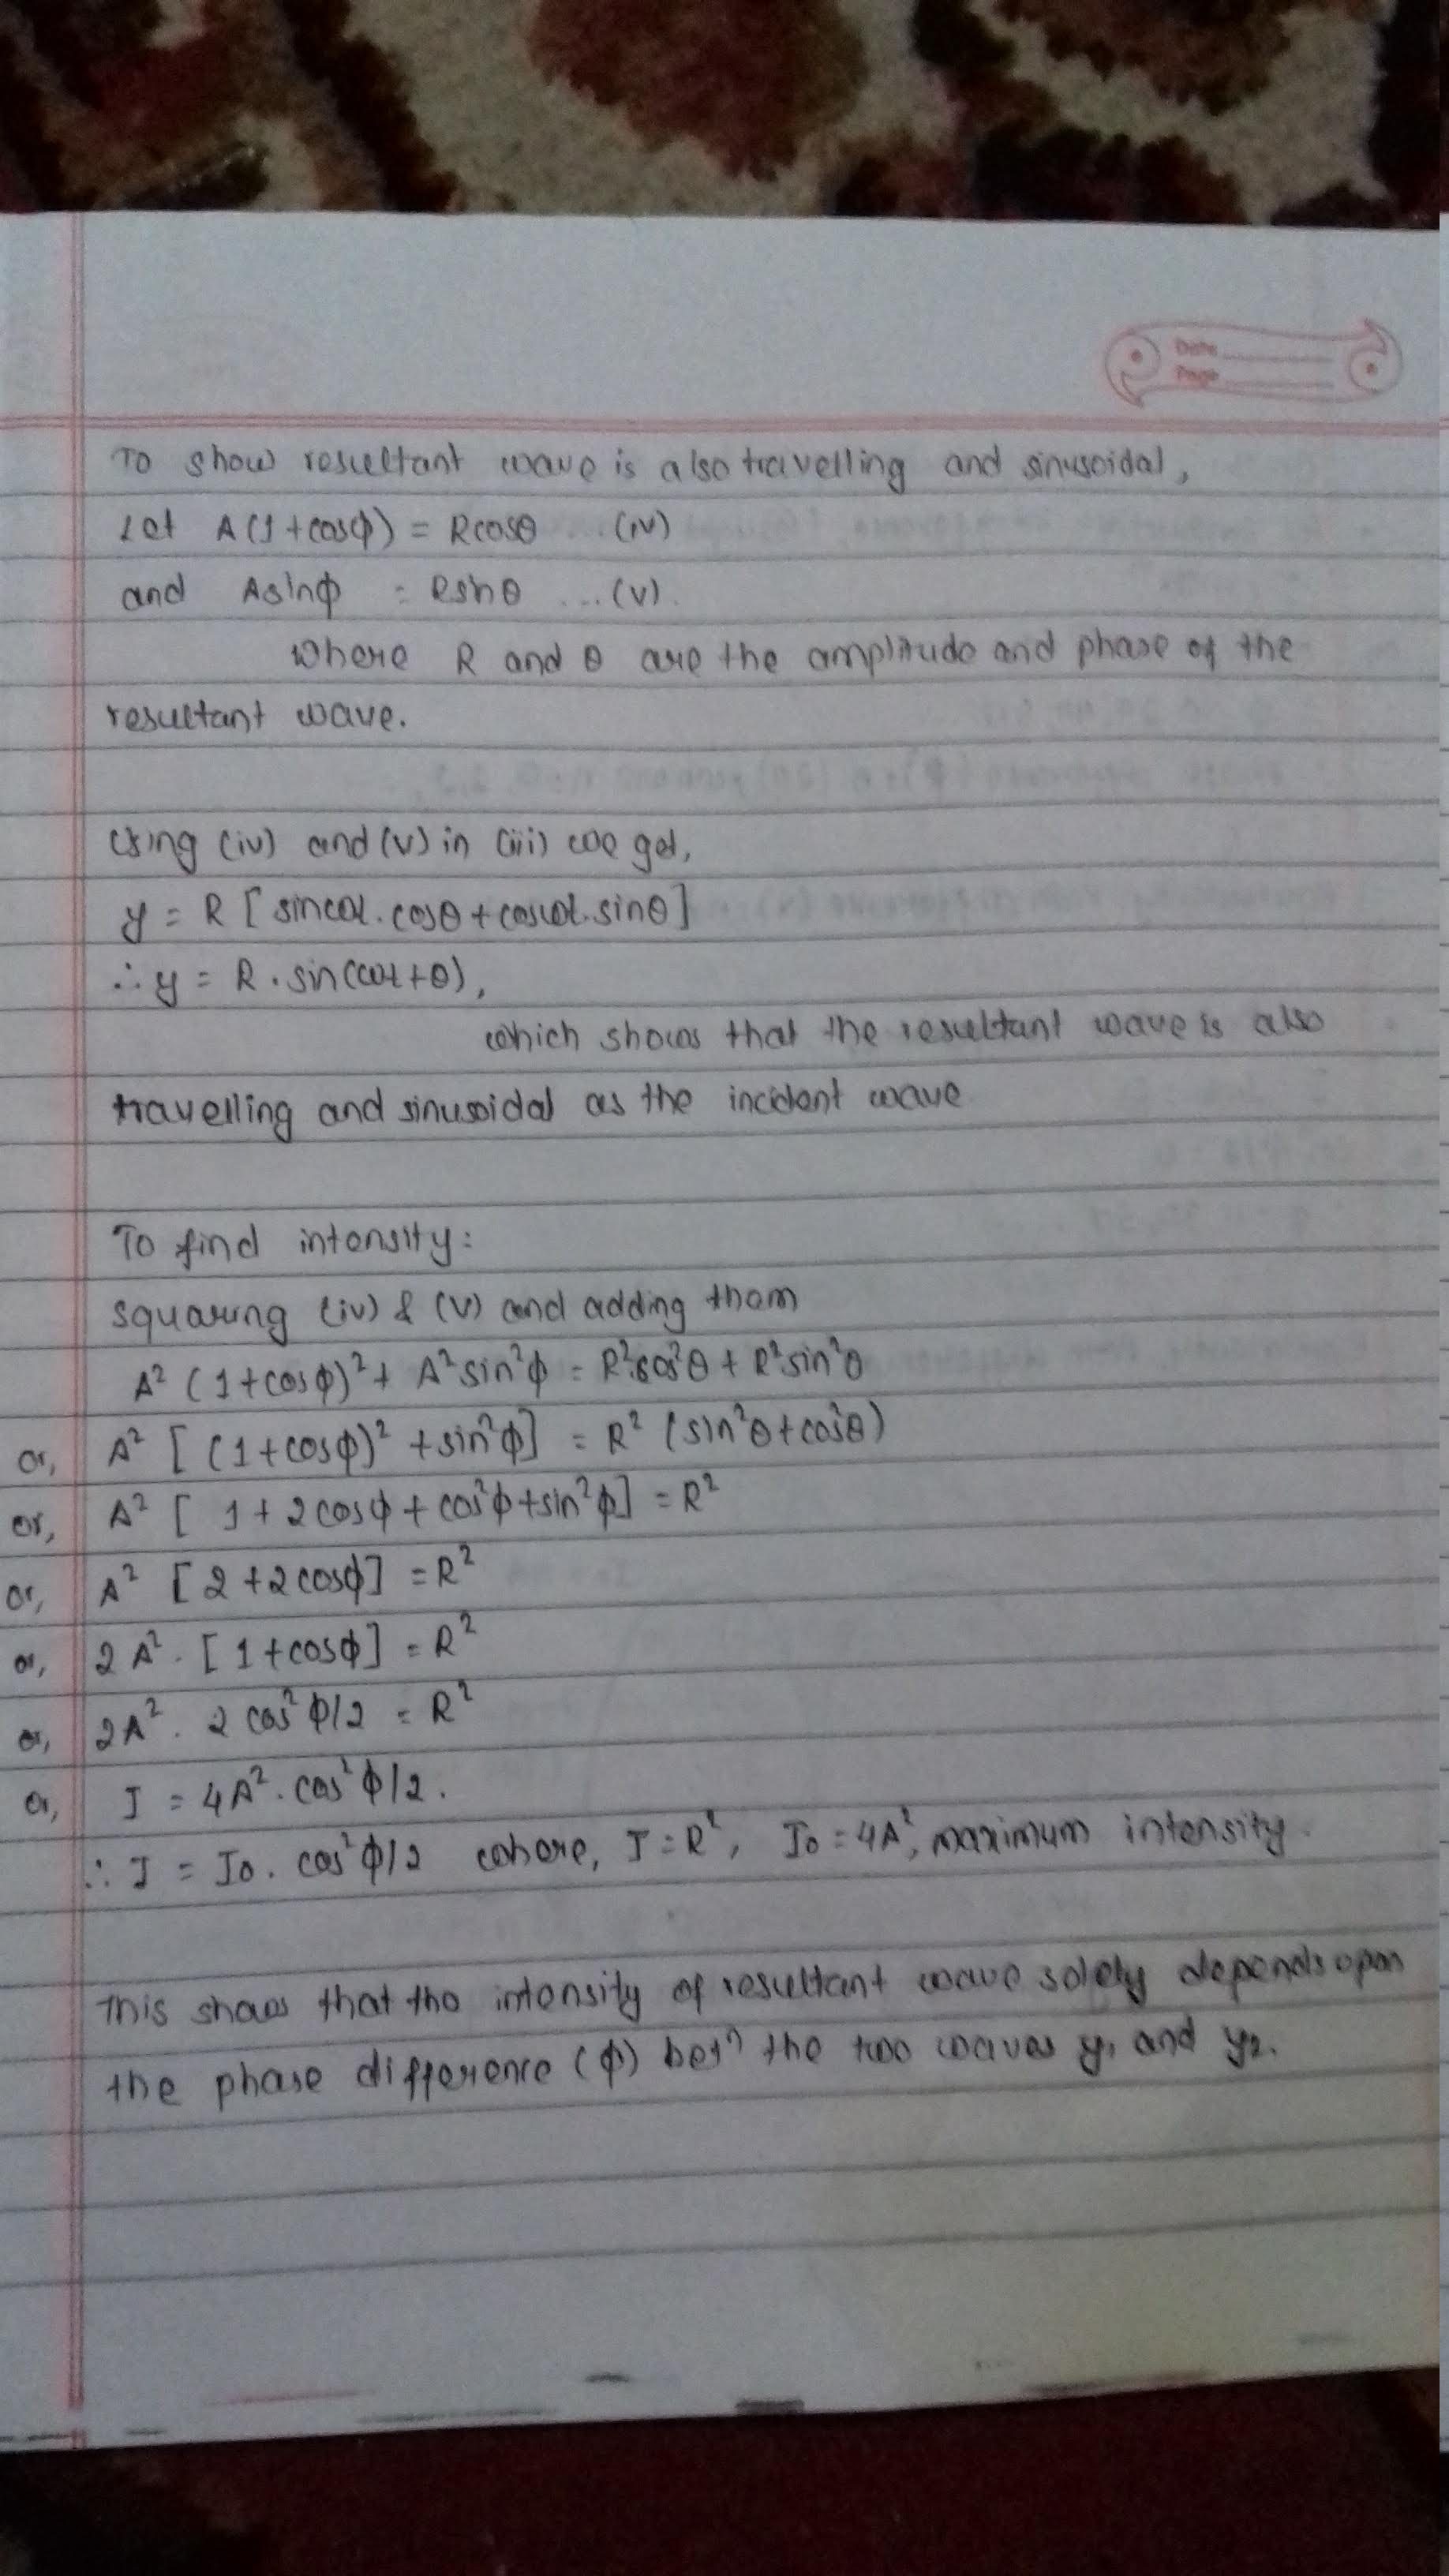 Date
Page
To show resultant wave is also travelling and sinusoidal,
Let A(1+cosϕ) = Rcosθ ... (iv)
and Asinϕ = Rsinθ ...(v).
where R and θ are the amplitude and phase of the
resultant wave.
Using (iv) and (v) in (iii) we get,
y = R [sinωt.cosθ+cosωt.sinθ]
∴ y = R.sin(ωt+θ),
which shows that the resultant wave is also
travelling and sinusoidal as the incident wave
To find intensity:
squaring (iv) & (v) and adding them
A² (1+cosϕ)² + A²sin²ϕ = R²cos²θ + R²sin²θ
or, A² [(1+cosϕ)² +sin²ϕ] = R² (sin²θ+cos²θ)
or, A² [ 1+2cosϕ+cos²ϕ+sin²ϕ] = R²
or, A² [2+2cosϕ] = R²
or, 2A². [1+cosϕ] = R²
or, 2A². 2cos²ϕ/2 = R²
or, I = 4A².cos²ϕ/2.
∴ I = I0. cos²ϕ/2 where, I=R², I0=4A², maximum intensity.
This shows that the intensity of resultant wave solely depends upon
the phase difference (ϕ) betⁿ the two waves y₁ and y₂.